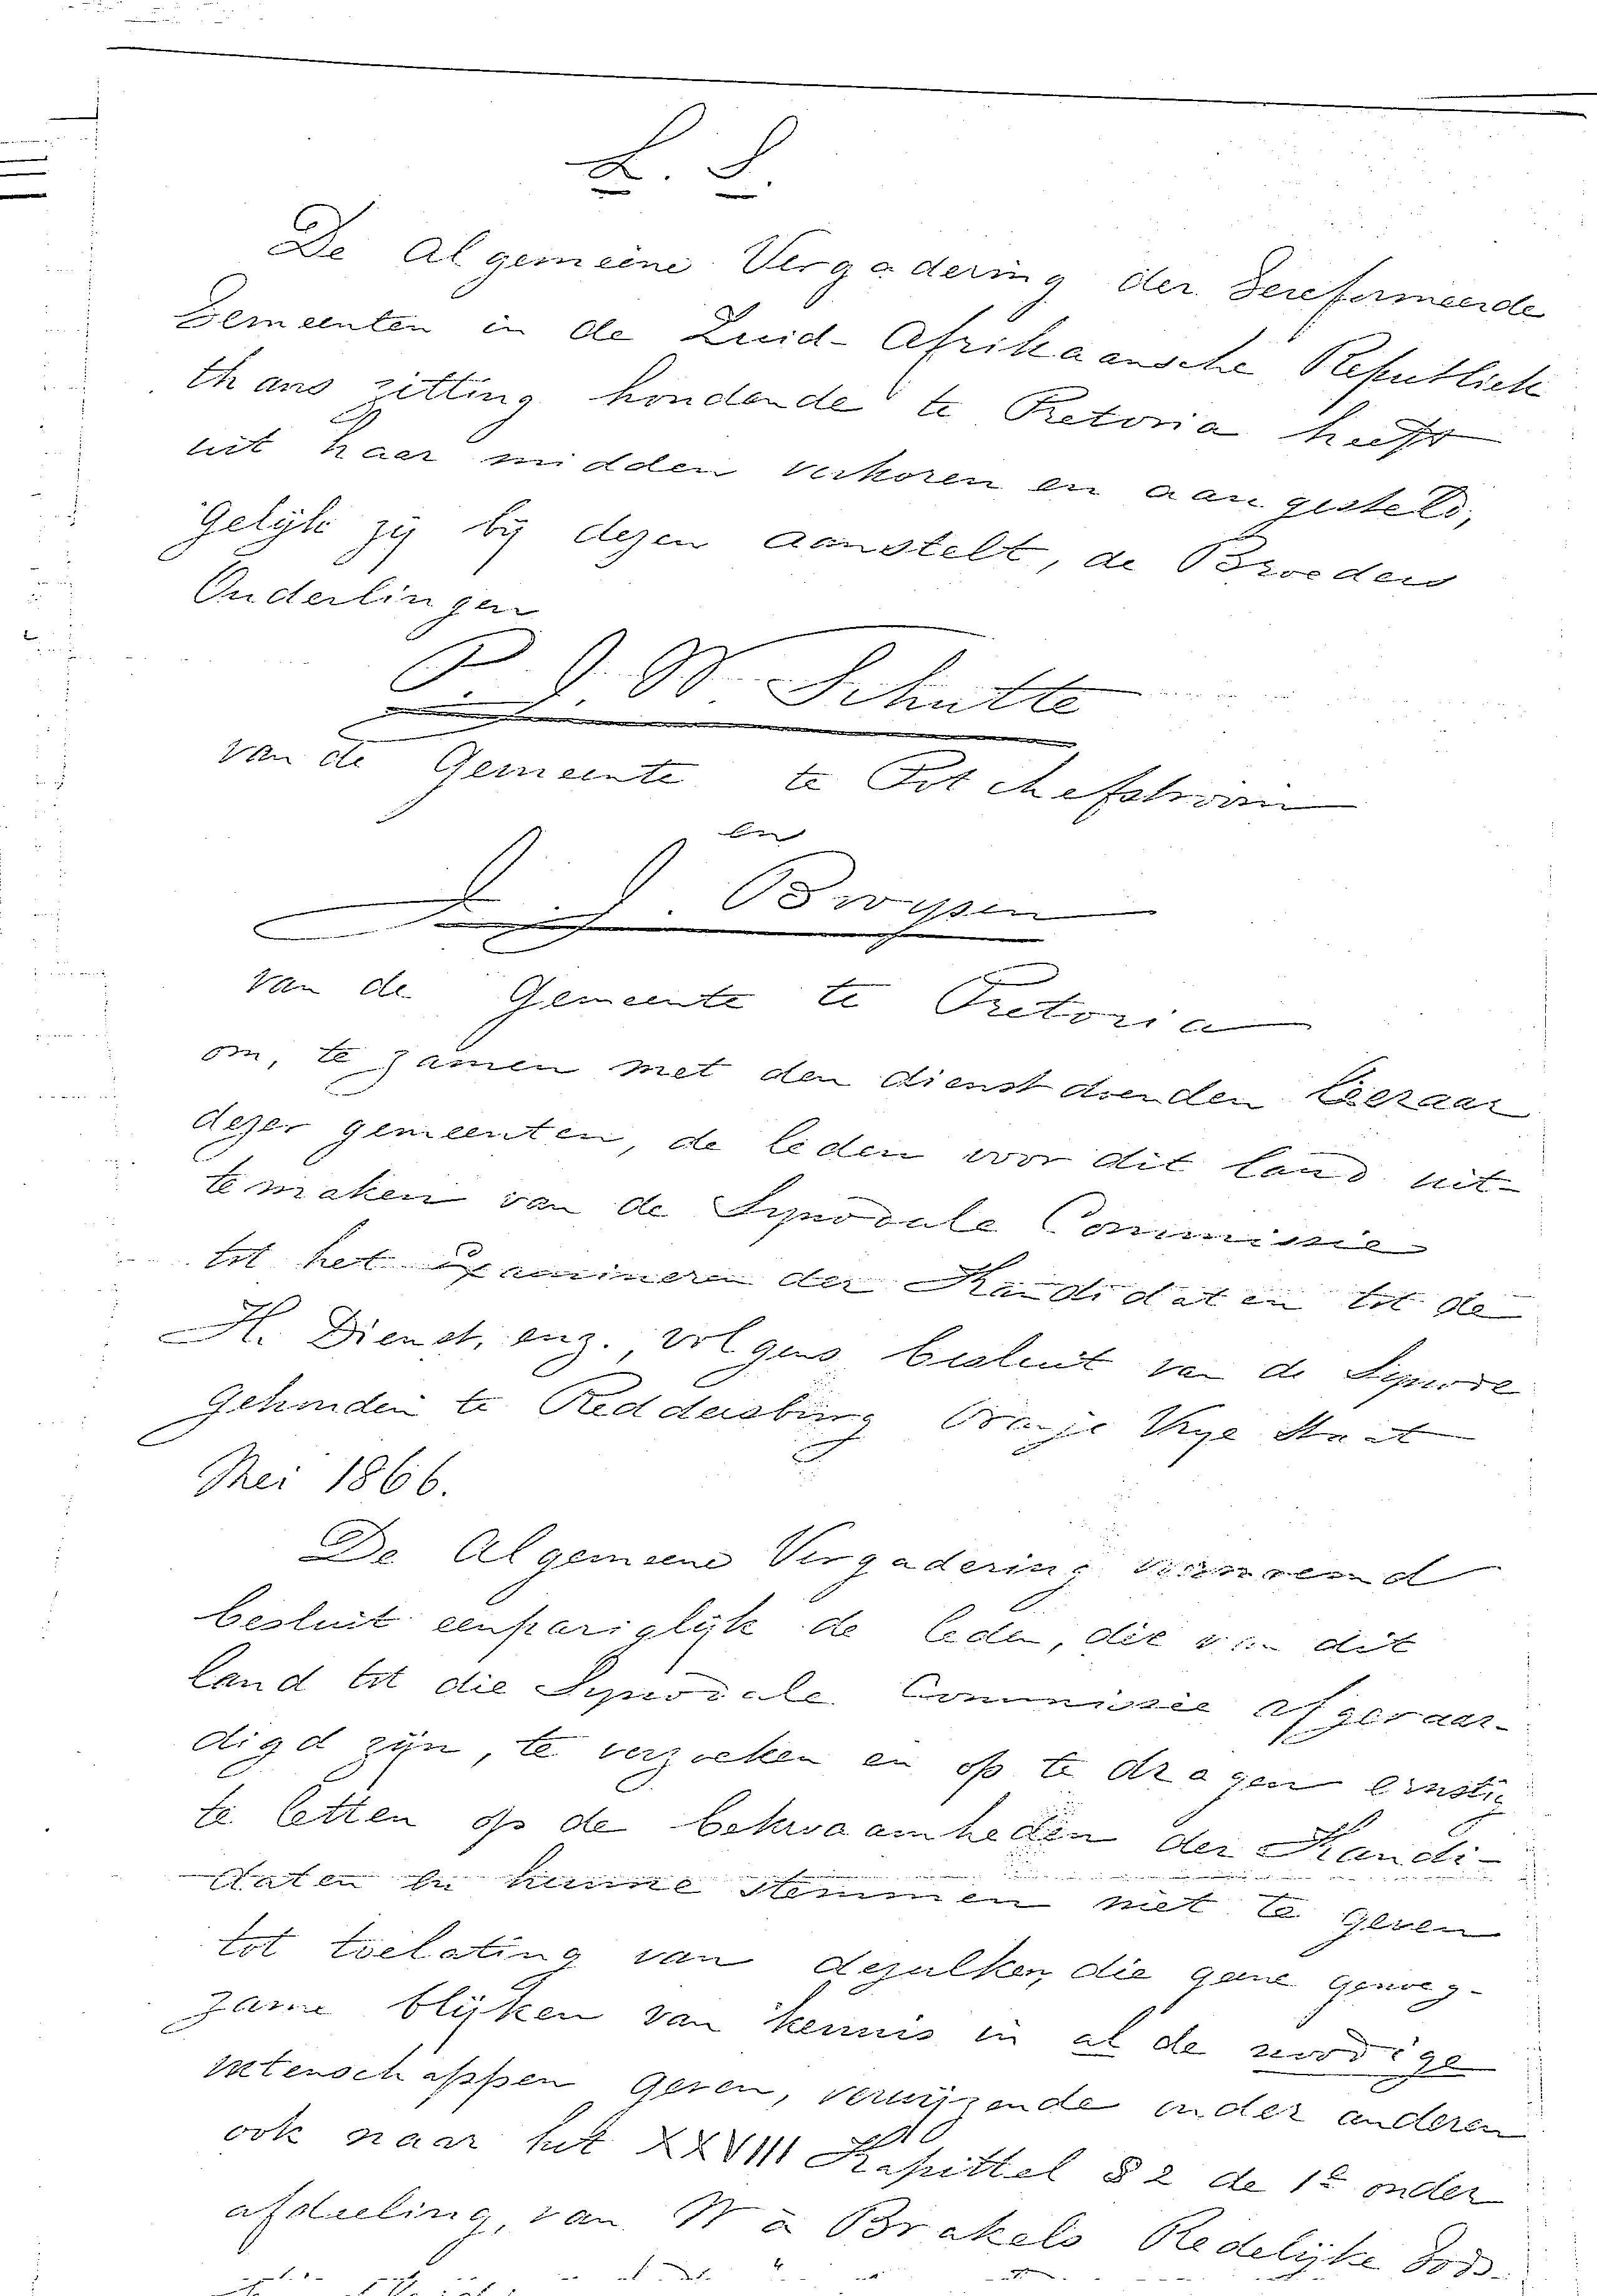 L. S.
De Algemeene Vergadering der Gereformeerde
Gemeenten in de Zuid-Afrikaansche Republiek
thans zitting houdende te Pretoria heeft
uit haar midden verkoren en aangesteld,
Gelijk zij bij dezen aanstelt, de Broeders
Ouderlingen
P. J. W. Schutte
van de Gemeente te Potchefstroom
en
J. J. Bruysen
van de Gemeente te Pretoria
om, te zamen met den dienstdoenden Leeraar
dezer gemeenten, de leden voor dit land uit-
te maken van de Synodale Commissie
tot het Examineren der Kandidaten tot de
H. Dienst, enz., volgens besluit van de Synode
Gehouden te Reddersburg Oranje Vrye Staat
Mei 1866.
De Algemeene Vergadering
besluit eenpariglijk de leden, die van dit
land tot die Synodale Commissie afgevaar-
digd zijn, te verzoeken en op te dragen ernstig
te letten op de bekwaamheden der Kandi-
daten en hunne stemmen niet te geven
tot toelating van dezulken, die gene genoeg-
zame blijken van kennis in al de noodige
wetenschappen geven, verwijzende onder anderen
ook naar het XXVIII Kapittel § 2 de 1e onder
afdeeling, van W à Brakels Redelijke Gods-